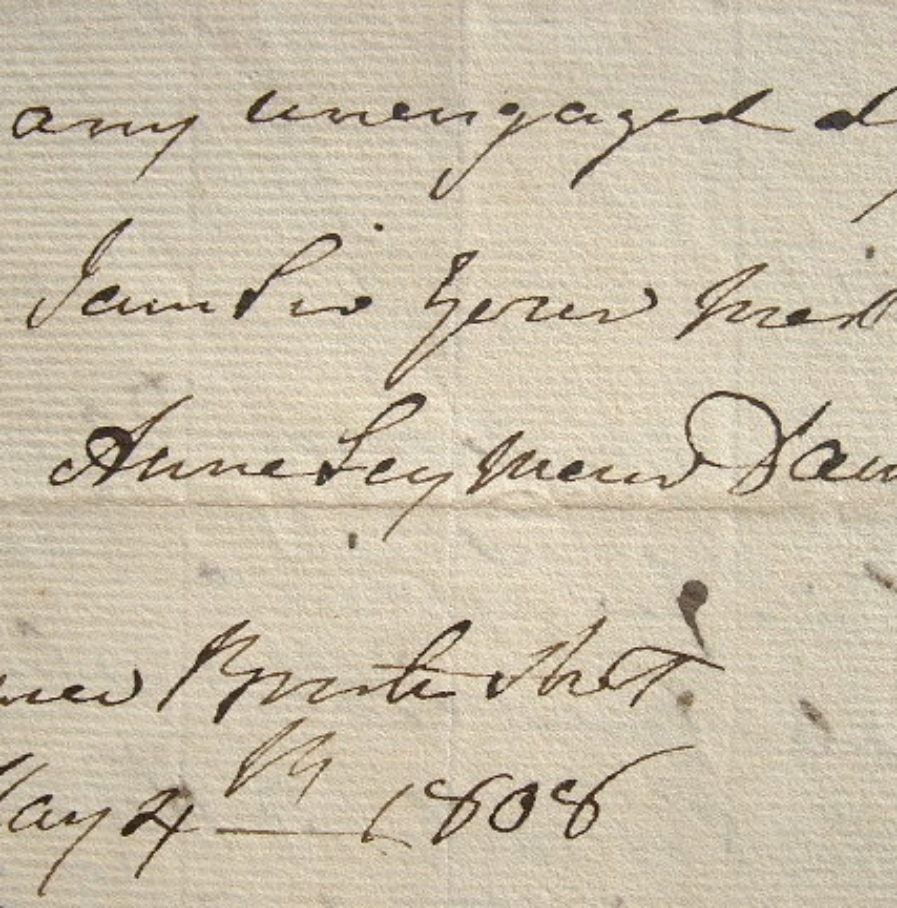 any unengaged d
I am Sir Your
Anne Seymour Dam
Brook Street
May 4th 1808